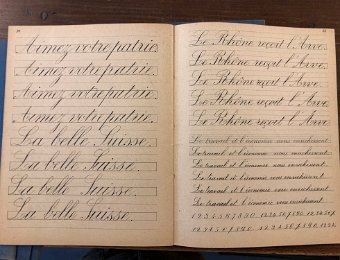 Aimez votre patrie.
Aimez votre patrie.
Aimez votre patrie.
Aimez votre patrie.
La belle Suisse.
La belle Suisse.
La belle Suisse.
La belle Suisse.
Le Rhône reçoit l'Arve.
Le Rhône reçoit l'Arve.
Le Rhône reçoit l'Arve.
Le Rhône reçoit l'Arve.
Le Rhône reçoit l'Arve.
Le travail et l'économie vous enrichissent.
Le travail et l'économie vous enrichissent.
Le travail et l'économie vous enrichissent.
Le travail et l'économie vous enrichissent.
Le travail et l'économie vous enrichissent.
Le travail et l'économie vous enrichissent.
1 2 3 4 5 6 7 8 9 0.
1 2 3 4 5 6 7 8 9 0.